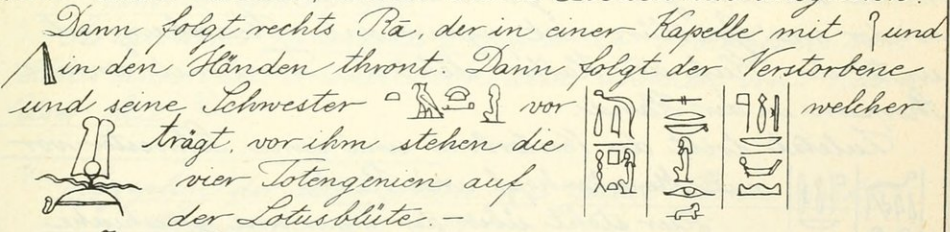 Dann folgt rechts Rā, der in einer Kapelle mit und
in den Händen thront. Dann folgt der Verstorbene
und seine Schwester vor welcher
trägt, vor ihm stehen die
vier Totengenien auf
der Lotusblüte. –